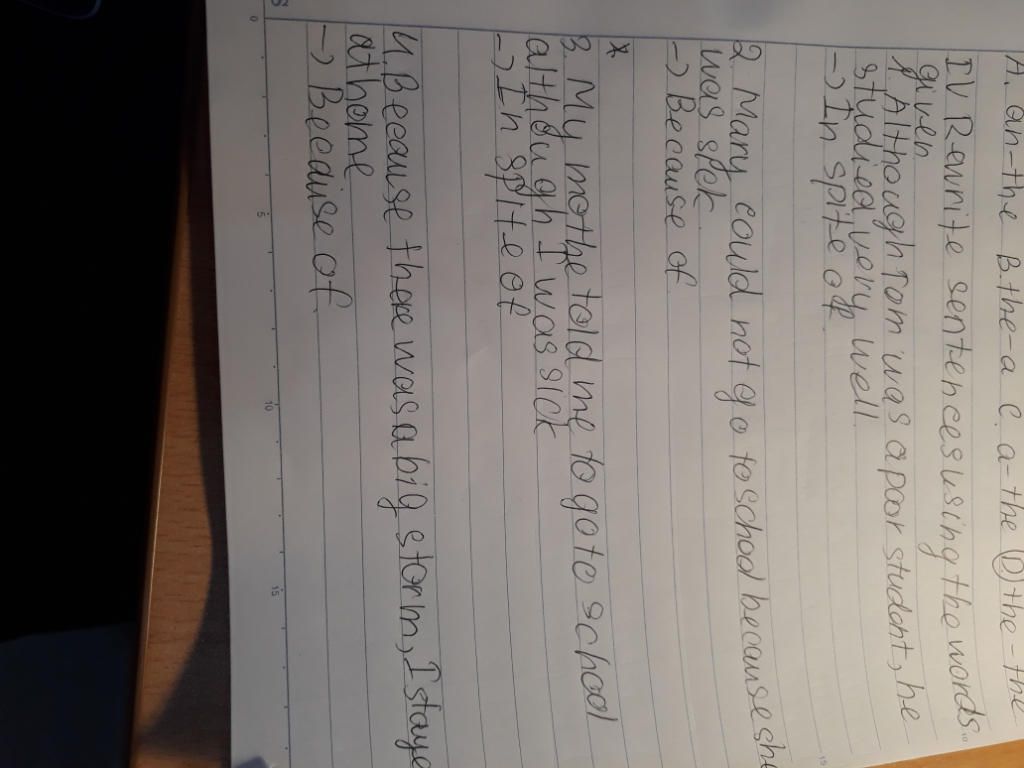 A. an-the B. the-a C. a-the D the-the
IV Rewrite sentences using the words
given
1. Although Tom was a poor student, he
studied very well
-> In spite of
2. Mary could not go to school because she
was sick
-> Because of
*
3. My mothe told me to go to school
although I was sick
-> In spite of
4. Because there was a big storm, I staye
at home
-> Because of
0
5
10
15